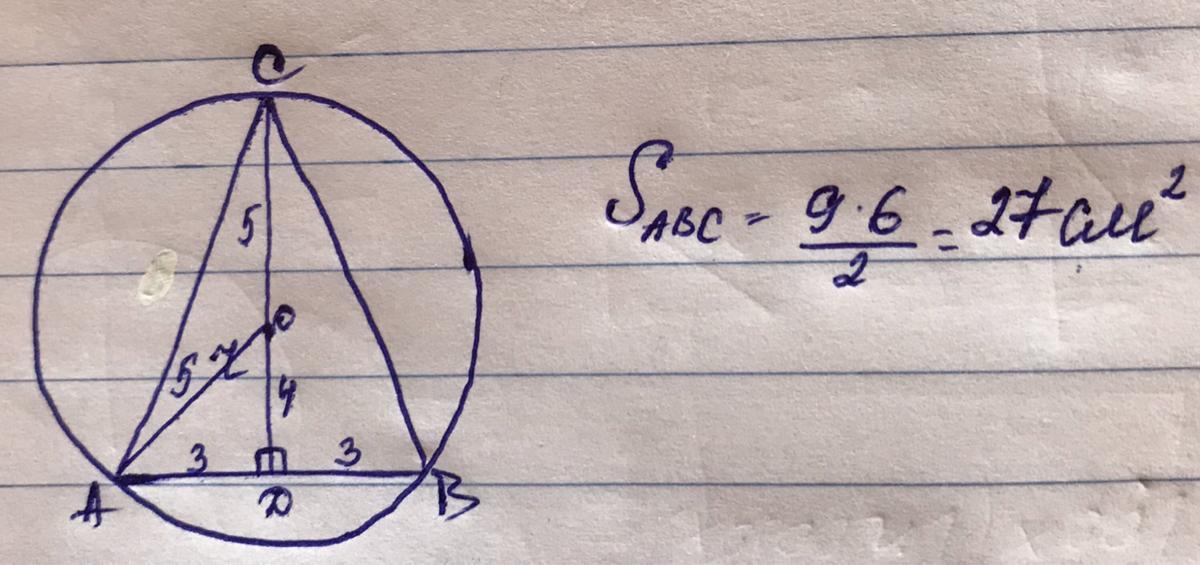 C
5
O
5 r
4
3
3
A
D
B
S_ABC = 9·6/2 = 27 см²